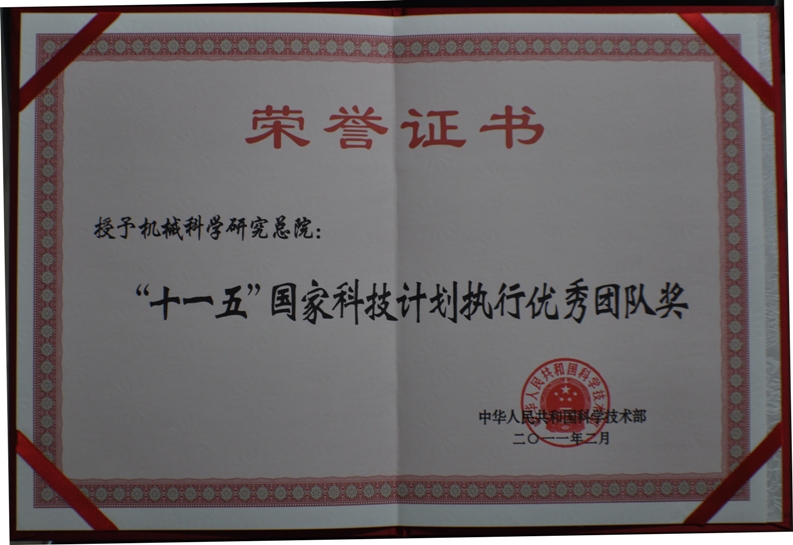 荣誉证书
授予机械科学研究总院：
“十一五”国家科技计划执行优秀团队奖
中华人民共和国科学技术部
二〇一一年二月